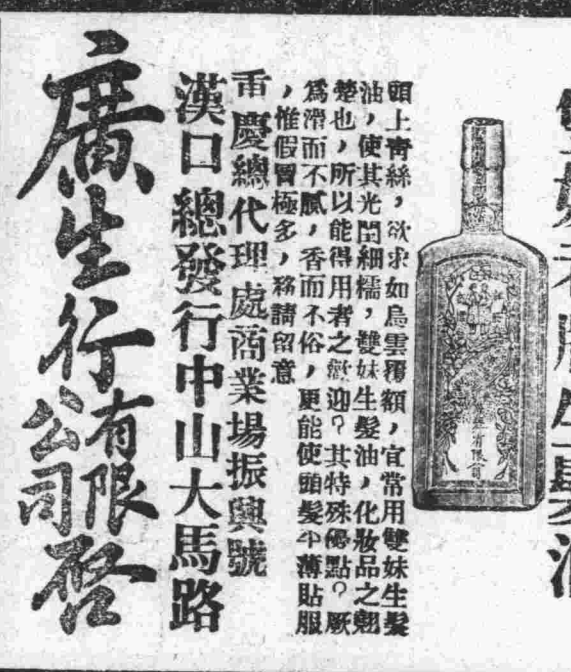 頭上靑絲,欲求如烏雲覆額,宜常用雙妹生髮
油,使其光閏細糯,雙妹生髮油,化妝品之翹
楚也,所以能得用者之歡迎?其特殊優點?厥
爲滑而不膩,香而不俗,更能使頭髮平薄貼服
,惟假冒極多,務請留意
重慶總代理處商業場振興號
漢口總發行中山大馬路
廣生行有限公司啓